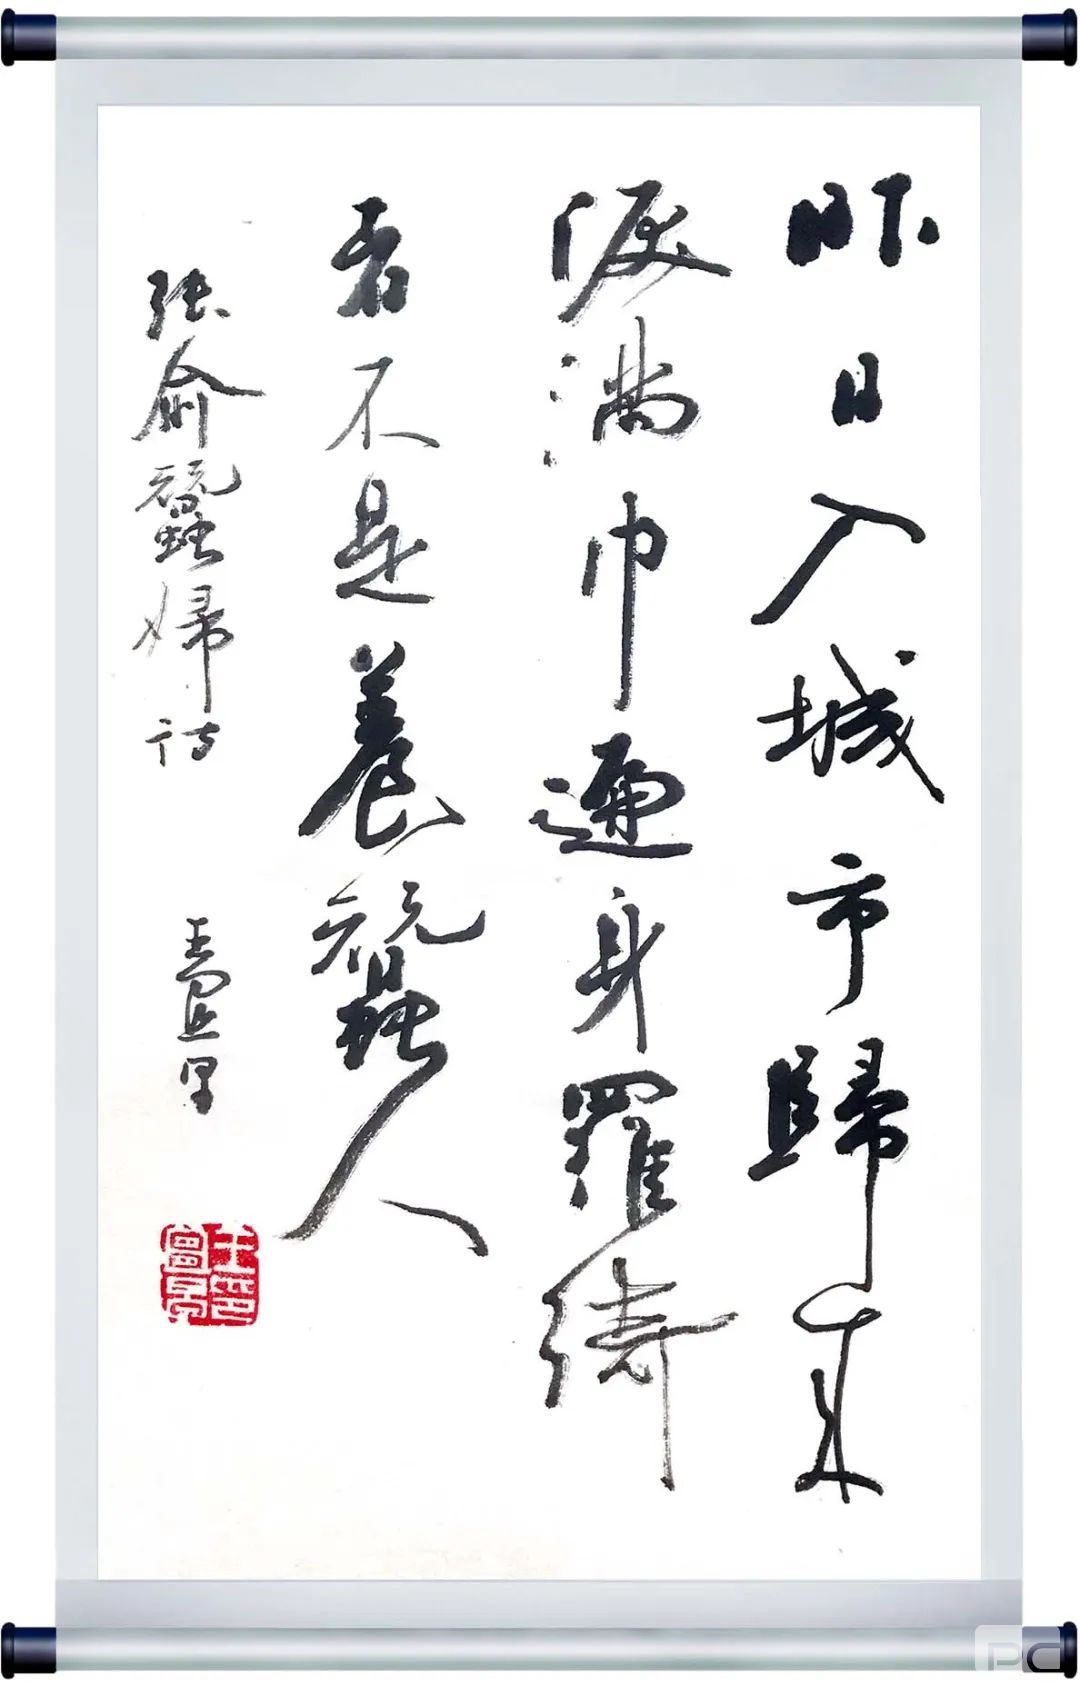 昨日入城市歸來
淚滿巾遍身羅綺
者不是養蠶人
張俞蠶婦詩
PC